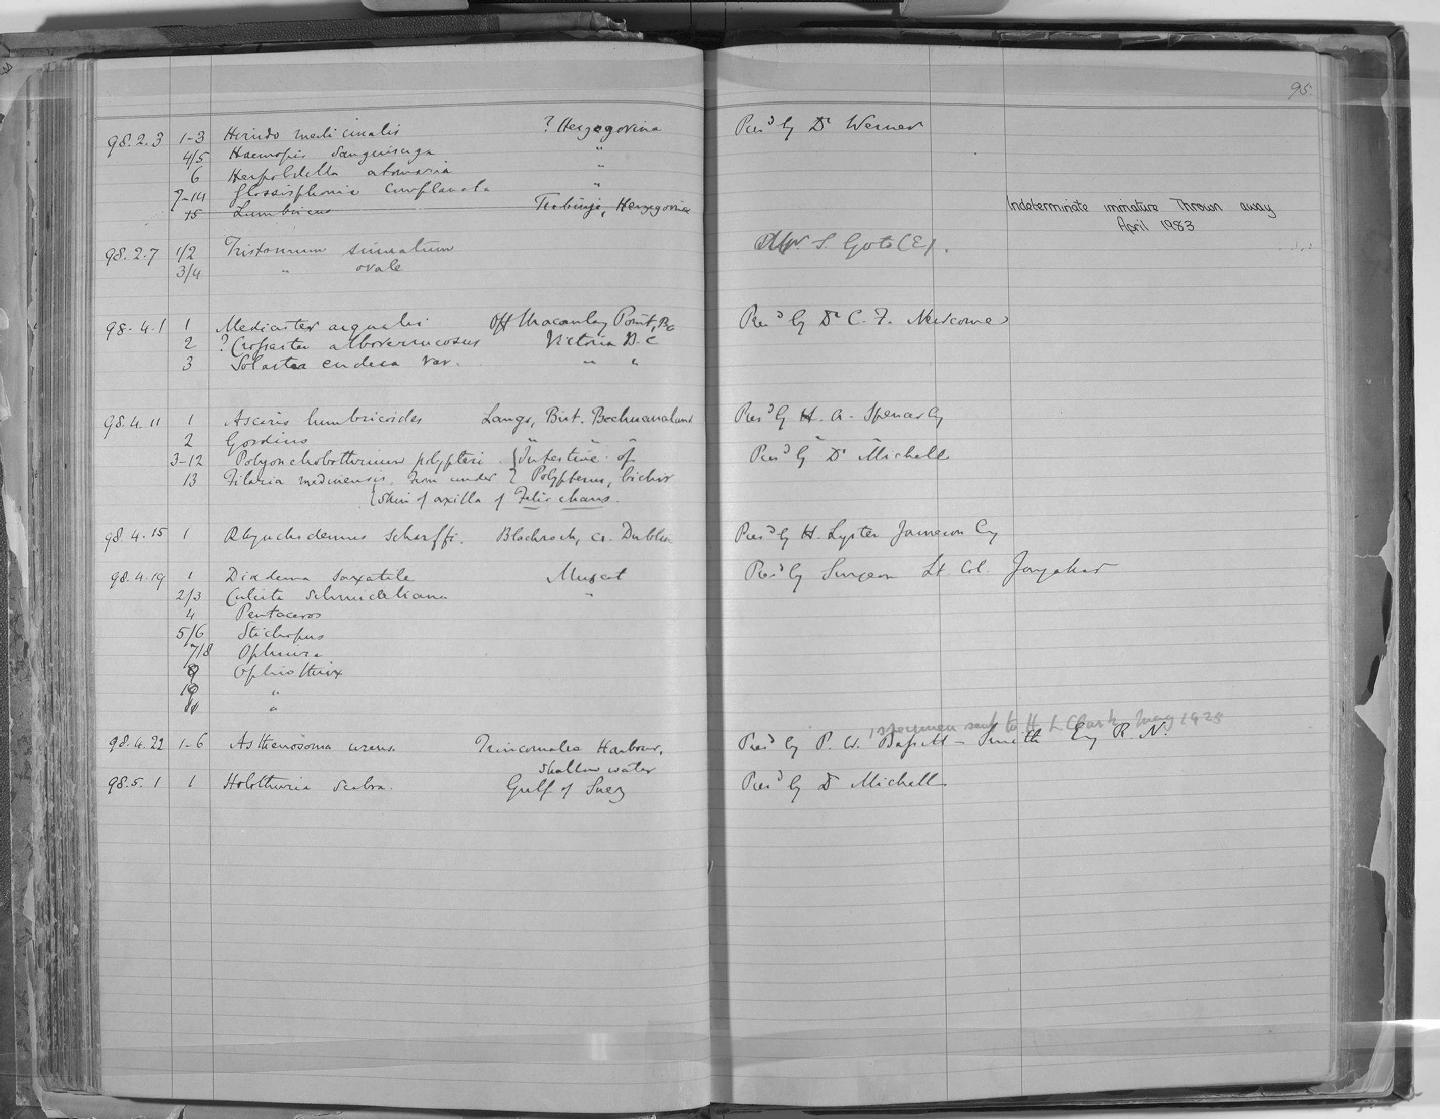 95.
98.2.3 1-3 Hirudo medicinalis ? Herzegovina Pres^d by D^r Werner
4/5 Haemopis sanguisuga "
6 Herpobdella atomaria "
7-14 Glossiphonia complanata "
15 Lumbricus Trebinje, Herzegovina Indeterminate immature Thrown away
April 1983
98.2.7 1/2 Tristomum sinuatum S. Goto (E).
3/4 " ovale
98.4.1 1 Mediaster aequalis Off Macaulay Point, BC Pres^d by D^r C. F. Newcome
2 ? Crossaster alboverrucosus Victoria B.C
3 Solaster endeca var. " "
98.4.11 1 Ascaris lumbricoides Langs, Brit. Bechuanaland Pres^d by H. A. Spencer Esq
2 Gordius " " "
3-12 Polyonchobothrium polypteri { Intestine of Pres^d by D^r Michell
13 Filaria medinensis, from under } Polypterus, bichir
{ skin of axilla of Felis chaus.
98.4.15 1 Rhynchodemus scharffi. Blackrock, Co. Dublin Pres^d by H. Lyster Jameson Esq
98.4.19 1 Diadema saxatile Muscat Pres^d by Surgeon Lt Col. Jayakar
2/3 Culcita schmideliana "
4 Pentaceros
5/6 Stichopus
7/8 Ophiura
9 Ophiothrix
10 "
11 "
1 specimen sent to H L Clark, May 1925
98.4.22 1-6 Asthenosoma urens. Trincomalee Harbour, Pres^d by P. W. Bassett-Smith Esq R.N.
shallow water
98.5.1 1 Holothuria scabra. Gulf of Suez Pres^d by D^r Michell